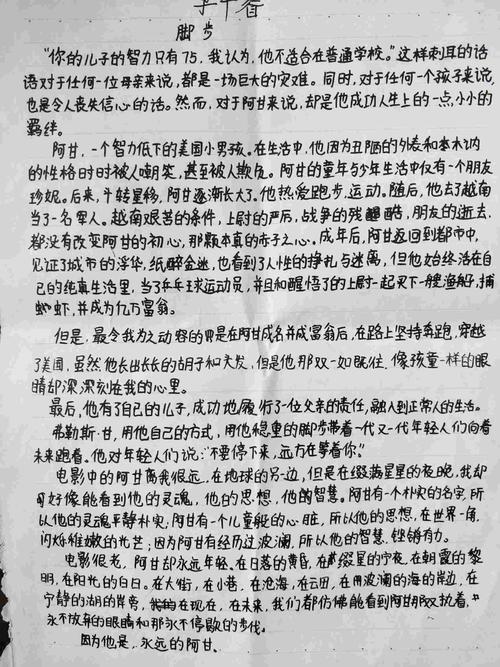 脚步
"你的儿子的智力只有75,我认为,他不适合在普通学校。"这样刺耳的话
语对于任何一位母亲来说,都是一场巨大的灾难。同时,对于任何一个孩子来说,
也是令人丧失信心的话。然而,对于阿甘来说,却是他成功人生上的一点,小小的
羁绊。
阿甘,一个智力低下的美国小男孩。在生活中,他因为丑陋的外表和木讷
的性格时时被人嘲笑,甚至被人欺负。阿甘的童年与少年生活中仅有一个朋友
珍妮。后来,斗转星移,阿甘逐渐长大了。他热爱跑步,运动。随后,他去了越南
当了一名军人。越南艰苦的条件,上尉的严厉,战争的残酷,朋友的逝去,
都没有改变阿甘的初心,那颗本真的赤子之心。成年后,阿甘返回到都市中,
见证了城市的浮华,纸醉金迷,也看到了人性的挣扎与迷离,但他始终活在自
己的纯真生活里,当了乒乓球运动员,并且和醒悟了的上尉一起买下一艘渔船,捕
虾,并成为亿万富翁。
但是,最令我为之动容的是在阿甘成名并成富翁后,在路上坚持奔跑,穿越
了美国,虽然他长出长长的胡子和头发,但是他那双一如既往,像孩童一样的眼
睛却深深刻在我的心里。
最后,他有了自己的儿子,成功地履行了一位父亲的责任,融入到正常人的生活。
弗勒斯·甘,用他自己的方式,用他稳重的脚步带着一代又一代年轻人们向着
未来跑着。他对年轻人们说:"不要停下来,远方在等着你。"
电影中的阿甘离我很远,在地球的另一边,但是在缀满星星的夜晚,我却
好像能看到他的灵魂,他的思想,他的智慧。阿甘有一个朴实的名字,所
以他的灵魂平静朴实,阿甘有一个儿童般的心脏,所以他的思想,在世界一角,
闪烁稚嫩的光芒;因为阿甘有经历过波澜,所以他的智慧,铿锵有力。
电影很老,阿甘却永远年轻。在日落的黄昏,在缀星的宁夜,在朝霞的黎
明,在阳光的白日。在大街,在小巷,在沧海,在云田,在用波澜的海的岸边,在
宁静的湖的岸旁,在现在,在未来,我们都仿佛能看到阿甘那双执着,
永不放弃的眼睛和那永不停歇的步伐。
因为他是,永远的阿甘。